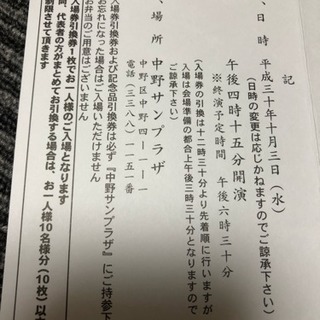 記
、日 時 平成三十年十月三日（水）
（日時の変更は応じかねますのでご諒承下さい）
午後四時十五分開演
※終演予定時間 午後六時三十分
（入場券の引換は十二時三十分より先着順に行いますが
入場は会場準備の都合上午後三時三十分となりますので
ご諒承下さい）
、場 所 中野サンプラザ
中野区中野四ー一ー一
電話（三三八八）一一五一番
入場券引換券および記念品引換券は必ず『中野サンプラザ』にご持参下
お忘れになった場合はご入場いただけません
お弁当のご用意はございません
入場券引換券１枚でお一人様のご入場となります
尚、代表者の方がまとめてお引換する場合は、お一人様10名様分（10枚）以
制限させて頂きます